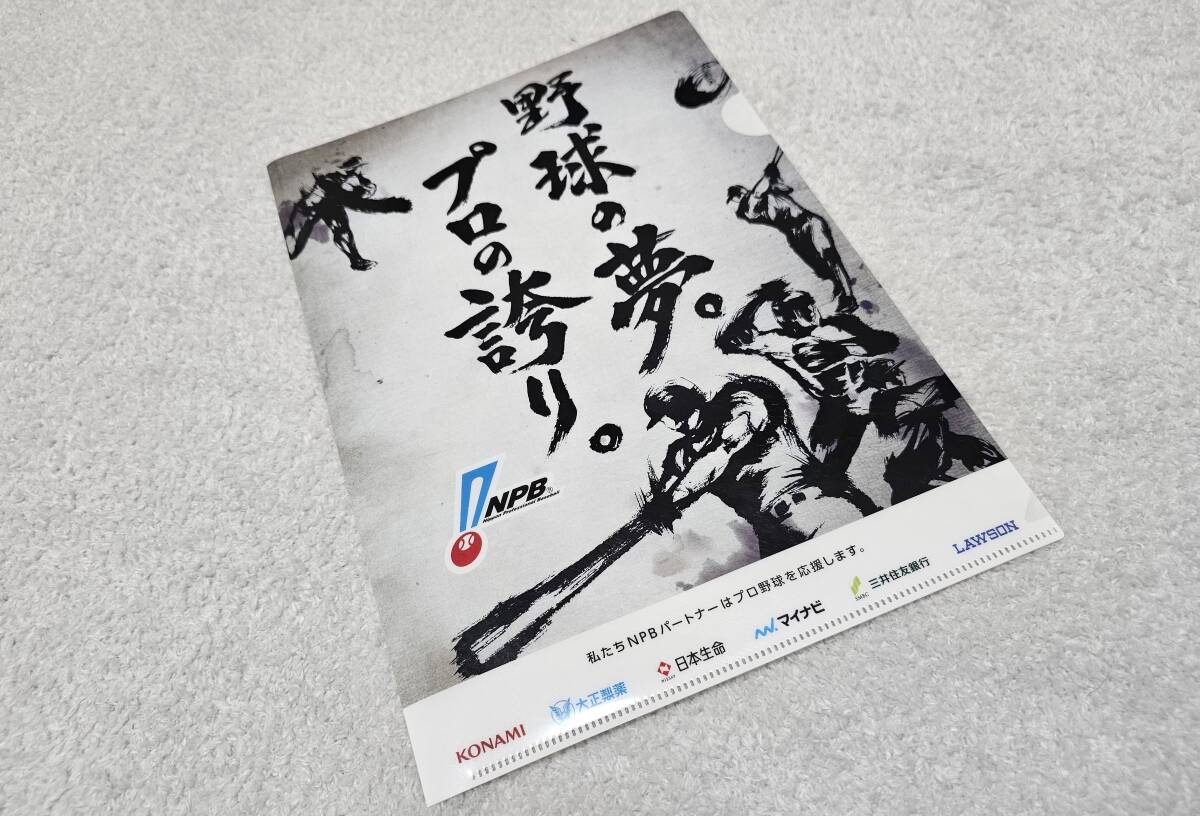 野球の夢。
プロの誇り。
NPB
Nippon Professional Baseball
私たちNPBパートナーはプロ野球を応援します。
KONAMI
大正製薬
日本生命
NISSAY
マイナビ
三井住友銀行
SMBC
LAWSON